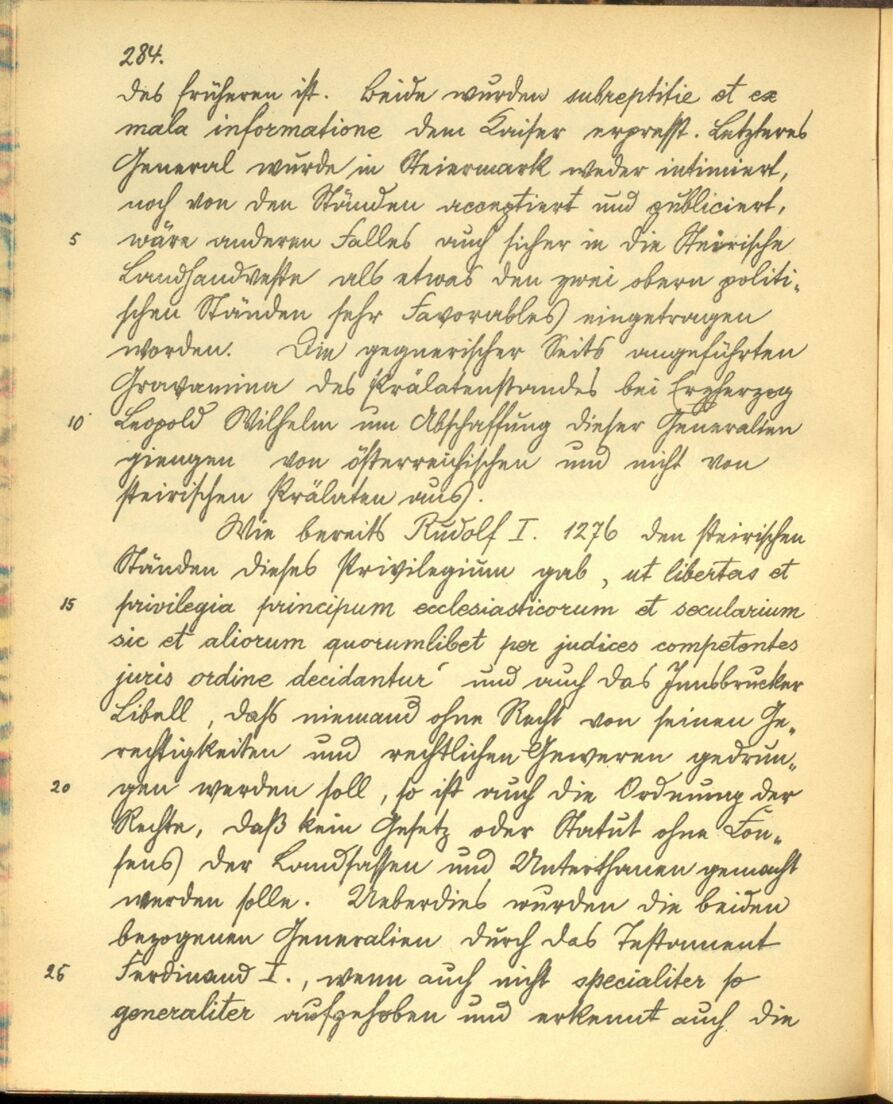 284.
des früheren ist. Beide wurden subreptitie et ex
mala informatione dem Kaiser erpresst. Letzteres
General wurde in Steiermark weder intimiert,
noch von den Ständen acceptiert und publiciert,
5 wäre anderen Falles auch sicher in die Steirische
Landhandveste als etwas den zwei obern politi-
schen Ständen sehr Favorables eingetragen
worden. Die gegnerischer Seits angeführten
Gravamina des Prälatenstandes bei Erzherzog
10 Leopold Wilhelm um Abschaffung dieser Generalien
giengen von österreichischen und nicht von
steirischen Prälaten aus.
Wie bereits Rudolf I. 1276 den steirischen
Ständen dieses Privilegium gab, ut libertas et
15 privilegia principum ecclesiasticorum et secularium
sic et aliorum quorumlibet per judices competentes
juris ordine decidantur' und auch das Innsbrucker
Libell, dass niemand ohne Recht von seinen Ge-
rechtigkeiten und rechtlichen Geweren gedrun-
20 gen werden soll, so ist auch die Ordnung der
Rechte, daß kein Gesetz oder Statut ohne Con-
sens der Landsassen und Unterthanen gemacht
werden solle. Ueberdies wurden die beiden
bezogenen Generalien durch das Testament
25 Ferdinand I., wenn auch nicht specialiter so
generaliter aufgehoben und erkennt auch die